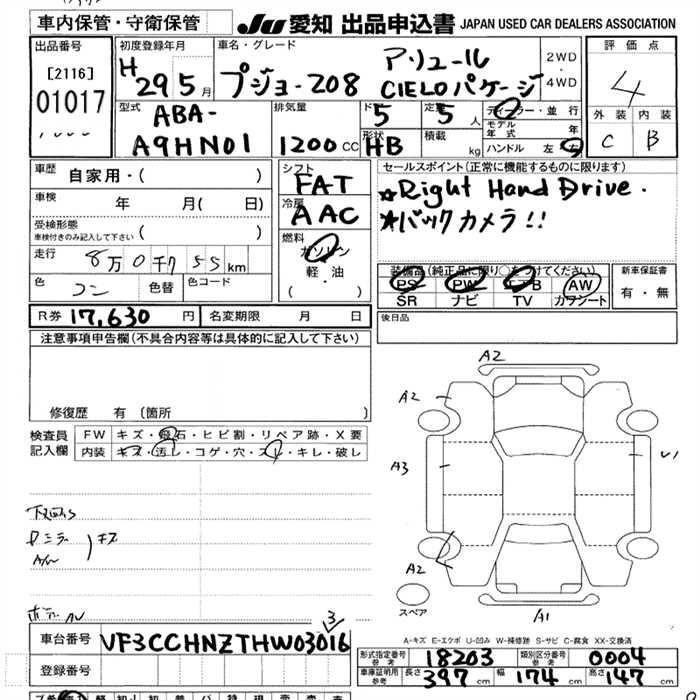 車内保管・守衛保管
JU 愛知 出品申込書 JAPAN USED CAR DEALERS ASSOCIATION
出品番号
[2116]
01017
初度登録年月
H 29 5月
車名・グレード
プジョー208
アリュール
CIELOパケージ
2WD
4WD
評価点
4
外装 内装
C B
型式
ABA-
A9HN01
排気量
1200 CC
ドア
5
定員
5 人
形状
HB
積載
kg
ディーラー・並行
モデル年式 年
ハンドル 左・右
車歴 自家用・( )
車検 年 月( 日)
受検形態
車検付きのみ記入して下さい ( )
走行 8万0千755km
色 コン 色替 色コード
R券 17,630 円 名変期限 月 日
シフト
FAT
冷房
AAC
燃料
ガソリン
軽・油
( ・ )
セールスポイント(正常に機能するものに限ります)
☆Right Hand Drive.
☆バックカメラ!!
装備品(純正品に限り○をつけてください)
PS PW エアB AW
SR ナビ TV カワシート
新車保証書
有・無
後日品
注意事項申告欄(不具合内容等は具体的に記入して下さい)
修復歴 有 (箇所 )
検査員記入欄
FW キズ・飛石・ヒビ割・リペア跡・X要
内装 キズ・汚れ・コゲ・穴・スレ・キレ・破し
下回りS
Dミラー
A/W
キズ
A2
A2
A3
U1
A2
A1
スペア
A-キズ E-エクボ U-凹み W-補修跡 S-サビ C-腐食 XX-交換済
3
車台番号 VF3CCHNZTHW03016
登録番号
形式指定番号 参考 18203 類別区分番号 参考 0004
車庫証明用 参考 長さ 397 cm 幅 174 cm 高さ 147 cm